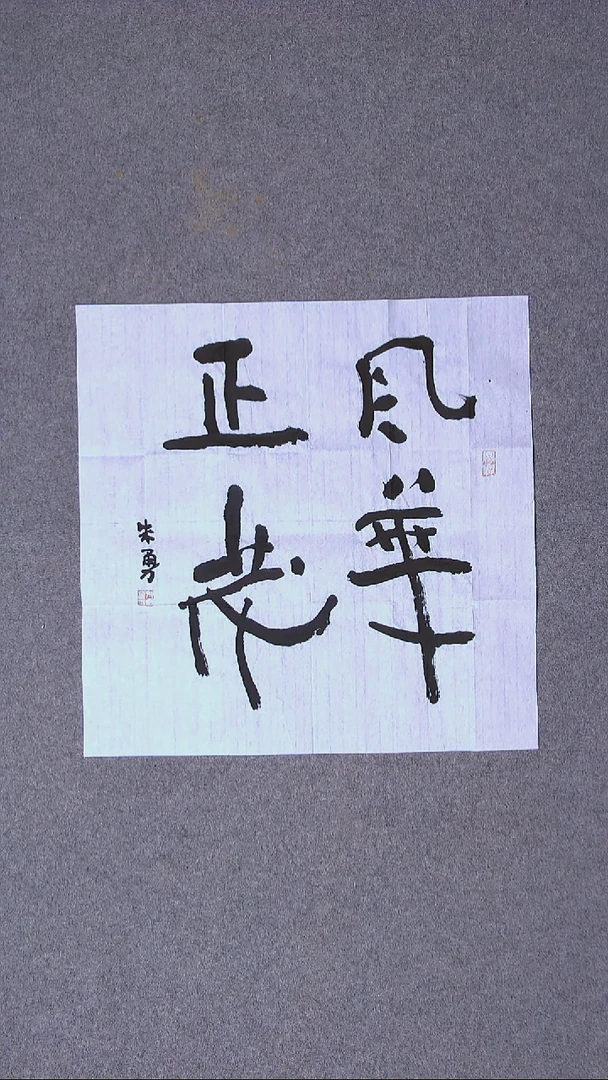 风華
正茂
朱勇